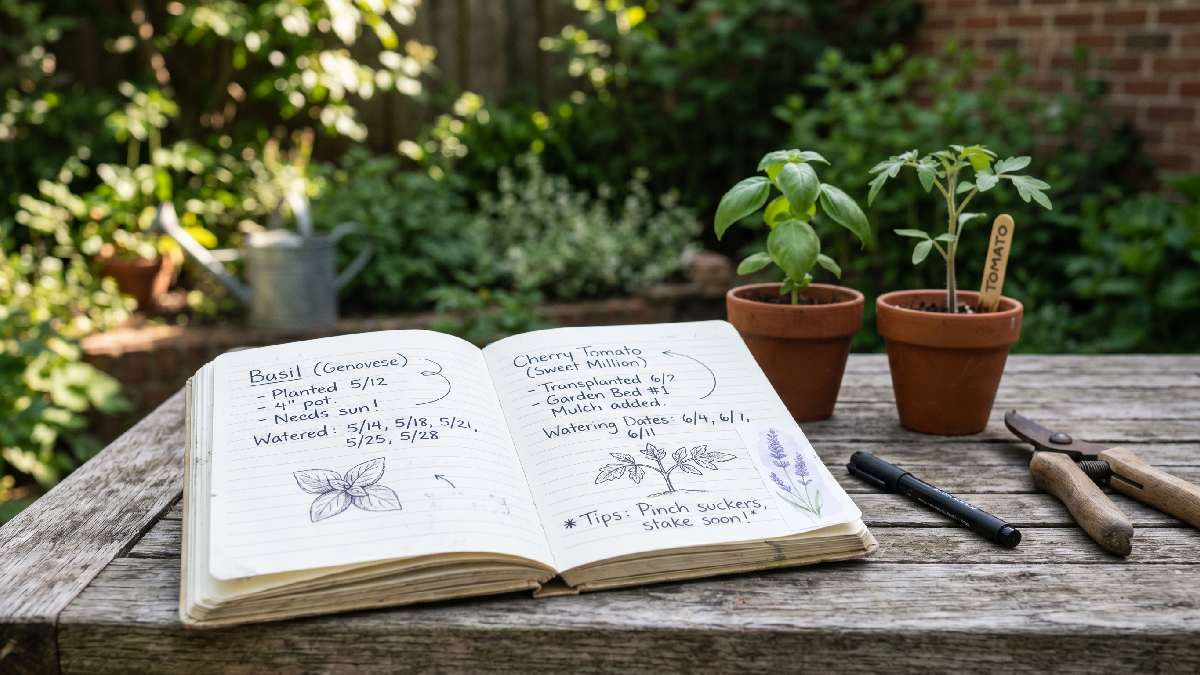 Basil (Genovese)
- Planted 5/12
- 4" pot.
- Needs sun!
Watered: 5/14, 5/18, 5/21,
5/25, 5/28
Cherry Tomato
(Sweet Million)
- Transplanted 6/?
- Garden Bed #1
Mulch added.
Watering Dates: 6/4, 6/1,
6/11
* Tips: Pinch suckers,
stake soon!*
TOMATO